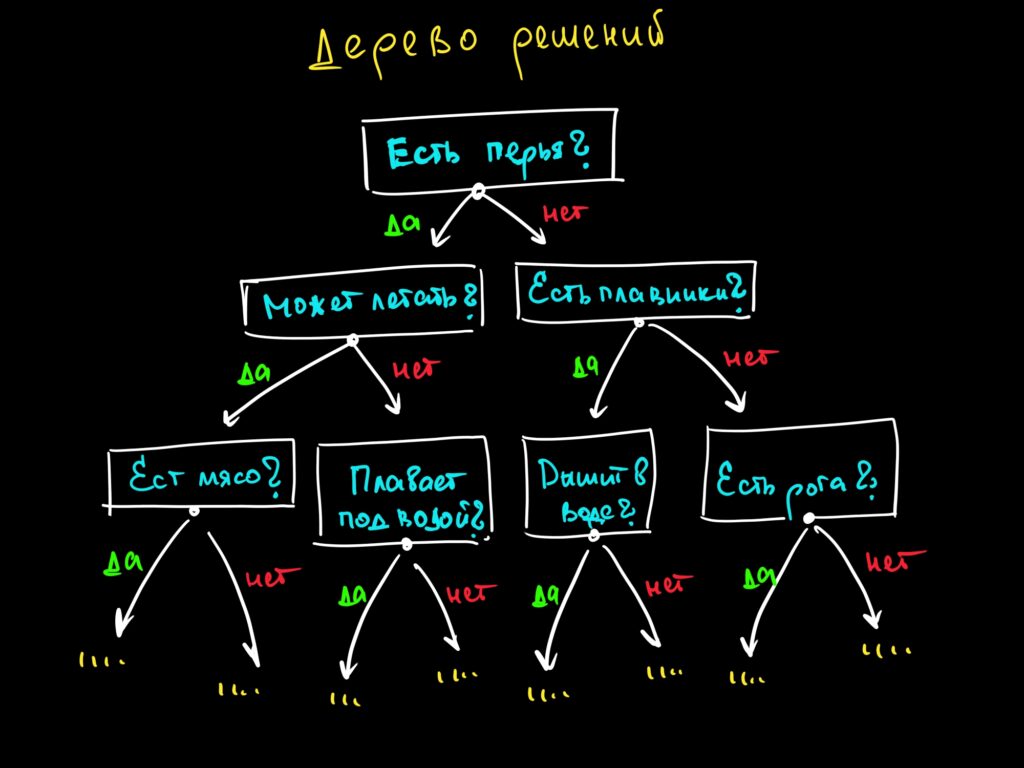 Дерево решений
Есть перья?
да
нет
Может летать?
Есть плавники?
да
нет
да
нет
Ест мясо?
Плавает
под водой?
Дышит в
воде?
Есть рога?
да
нет
да
нет
да
нет
да
нет
....
....
...
....
....
....
....
....